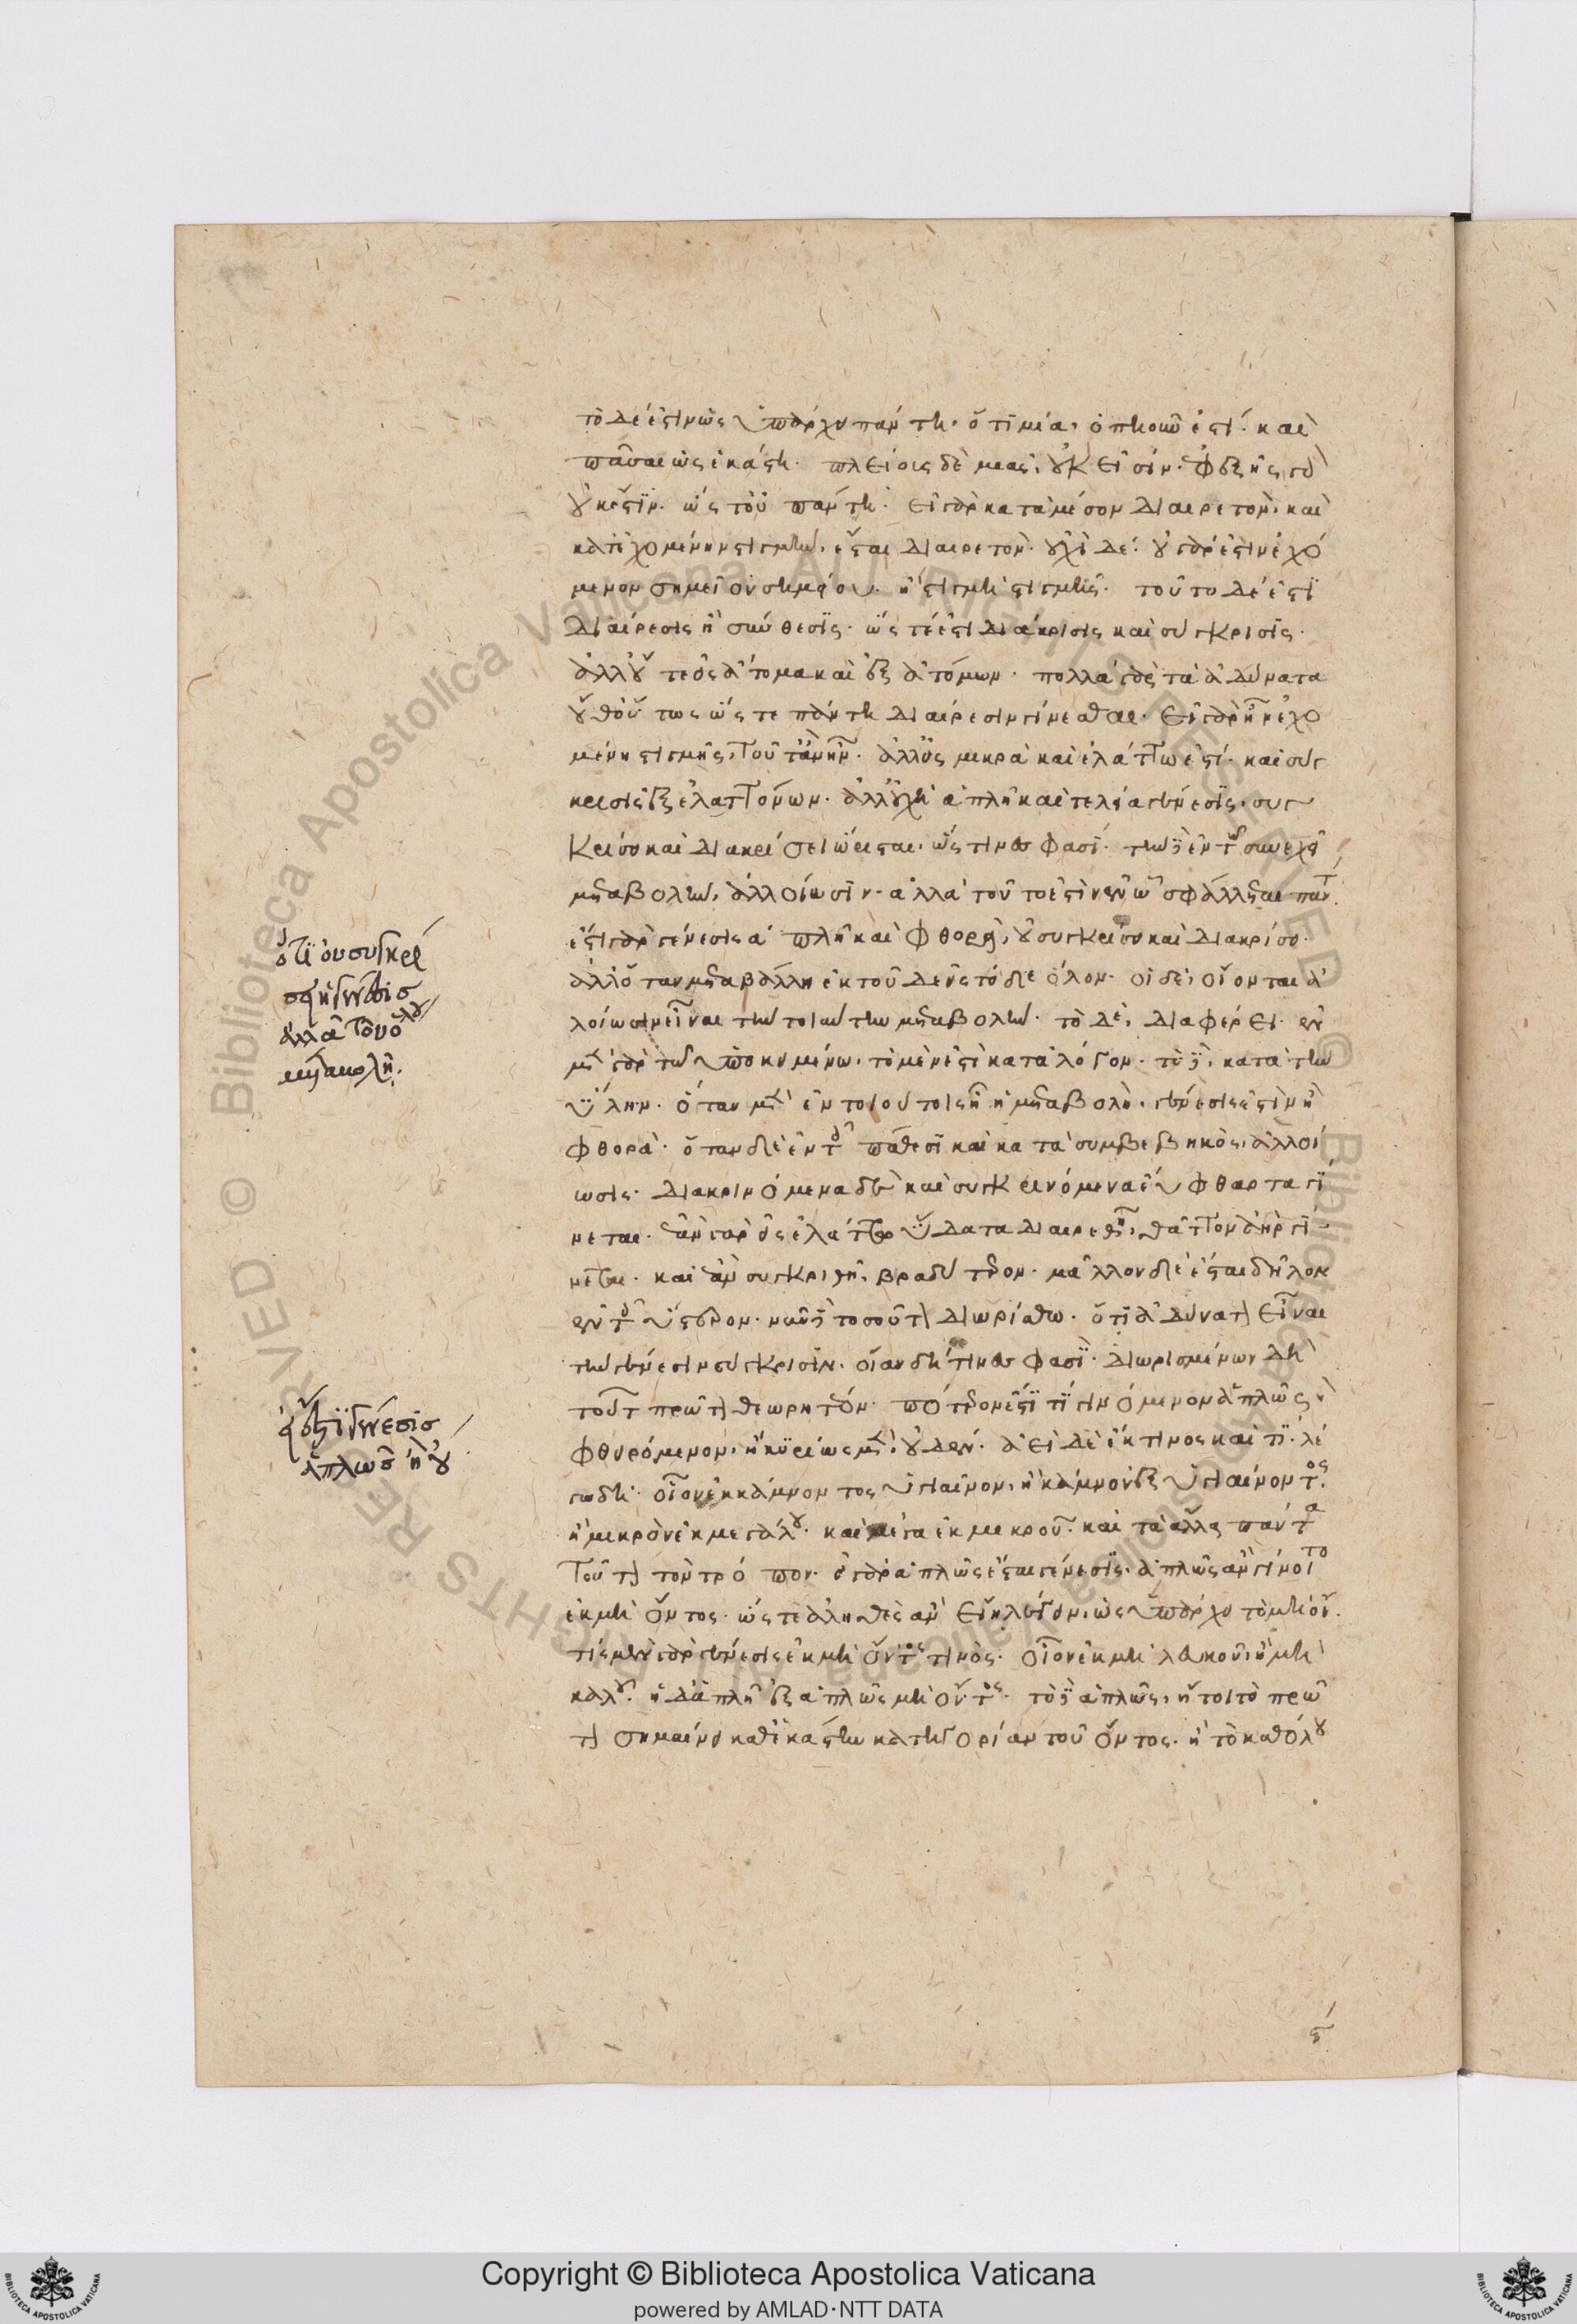 τὸ δέ ἐστιν ὡς ὑπάρχει πάντη. ὅτι μία, ὁπηοῦν ἐστί. καὶ
πᾶσαι ὡς ἑκάστη. πλείους δὲ μιᾶς, οὐκ εἰσίν. ἐφεξῆς γὰρ
οὐκ εἰσίν. ὥστ' οὐ πάντη. εἰ γὰρ κατὰ μέσον διαιρετὸν, καὶ
κατ' ἐχομένην στιγμὴν, ἔσται διαιρετόν. οὐχὶ δέ. οὐ γάρ ἐστιν ἐχό
μενον σημεῖον σημείου. ἢ στιγμὴ στιγμῆς. τοῦτο δέ ἐστι
διαίρεσις ἢ σύνθεσις. ὥστ' ἔστι διάκρισις καὶ σύγκρισις.
ἀλλ' οὔτε εἰς ἄτομα καὶ ἐξ ἀτόμων. πολλὰ γὰρ τὰ ἀδύνατα
οὔθ' οὕτως ὥστε πάντη διαίρεσιν γίνεσθαι. εἰ γὰρ ἦν ἐχο
μένη στιγμῆς, τοῦτ' ἂν ἦν. ἀλλ' εἰς μικρὰ καὶ ἐλάττω ἐστί. καὶ σύγ
κρισις ἐξ ἐλαττόνων. ἀλλ' οὐχ ἡ ἁπλῆ καὶ τελεία γένεσις, συγ
κρίσει καὶ διακρίσει ὥρισται, ὥς τινές φασι. τὴν δ' ἐν τῷ συνεχεῖ
μεταβολὴν, ἀλλοίωσιν. ἀλλὰ τοῦτό ἐστιν ἐν ᾧ σφάλλεται πάντ
ἔστι γὰρ γένεσις ἁπλῆ καὶ φθορὰ, οὐ συγκρίσει καὶ διακρίσει.
ἀλλ' ὅταν μεταβάλλη ἐκ τοῦδε εἰς τόδε ὅλον. οἱ δὲ, οἴονται ἀλ
λοίωσιν εἶναι τὴν τοιαύτην μεταβολήν. τὸ δὲ, διαφέρει. ἐν
μὲν γὰρ τῷ ὑποκειμένω, τὸ μέν ἐστι κατὰ λόγον. τὸ δὲ, κατὰ τὴν
ὕλην. ὅταν μὲν ἐν τούτοις ἦ ἡ μεταβολὴ, γένεσις ἐστὶν ἢ
φθορά. ὅταν δὲ ἐν τοῖς πάθεσι καὶ κατὰ συμβεβηκὸς, ἀλλοί
ωσις. διακρινόμενα δὲ καὶ συγκρινόμενα εὔφθαρτα γί
νεται. ἂν γὰρ εἰς ἐλάττω ὑδάτια διαιρεθῆ, θᾶττον ἀὴρ γί
νεται. καὶ ἂν συγκριθῆ, βραδύτερον. μᾶλλον δὲ ἔσται δῆλον
ἐν τοῖς ὕστερον. νῦν δὲ τοσοῦτον διωρίσθω. ὅτι ἀδύνατον εἶναι
τὴν γένεσιν σύγκρισιν. οἵαν δή τινές φασι. διωρισμένων δὴ
τούτων πρῶτον θεωρητέον. πότερόν ἐστί τι γινόμενον ἁπλῶς ἢ
φθειρόμενον. ἢ κυρίως μὲν, οὐδέν. ἀεὶ δὲ ἔκ τινος καὶ τὶ. λέ
γω δὴ οἷον ἐκ κάμνοντος ὑγιαῖνον, ἢ κάμνον ἐξ ὑγιαίνοντος.
ἢ μικρὸν ἐκ μεγάλου. καὶ μέγα ἐκ μικροῦ. καὶ τἄλλα πάντα
τοῦτον τὸν τρόπον. εἰ γὰρ ἁπλῶς ἔσται γένεσις, ἁπλῶς ἂν γίνοιτο
ἐκ μὴ ὄντος. ὥστε ἀληθὲς ἂν εἴη λέγειν, ὡς ὑπάρχει τὸ μὴ ὄν.
τὶς μὲν γὰρ γένεσις ἐκ μὴ ὄντος τινός. οἷον ἐκ μὴ λευκοῦ, ἢ μὴ
καλοῦ. ἡ δὲ ἁπλῆ ἐξ ἁπλῶς μὴ ὄντος. τὸ δὲ ἁπλῶς, ἤτοι τὸ πρῶ
τον σημαίνει καθ' ἑκάστην κατηγορίαν τοῦ ὄντος. ἢ τὸ καθόλου
ὅτι οὐ συγκρί
σει ἡ γένεσις
ἀλλὰ τοῦ ὅλου
μεταβολῆ.
εἰ ἔστι γένεσις
ἁπλῶς ἢ οὔ